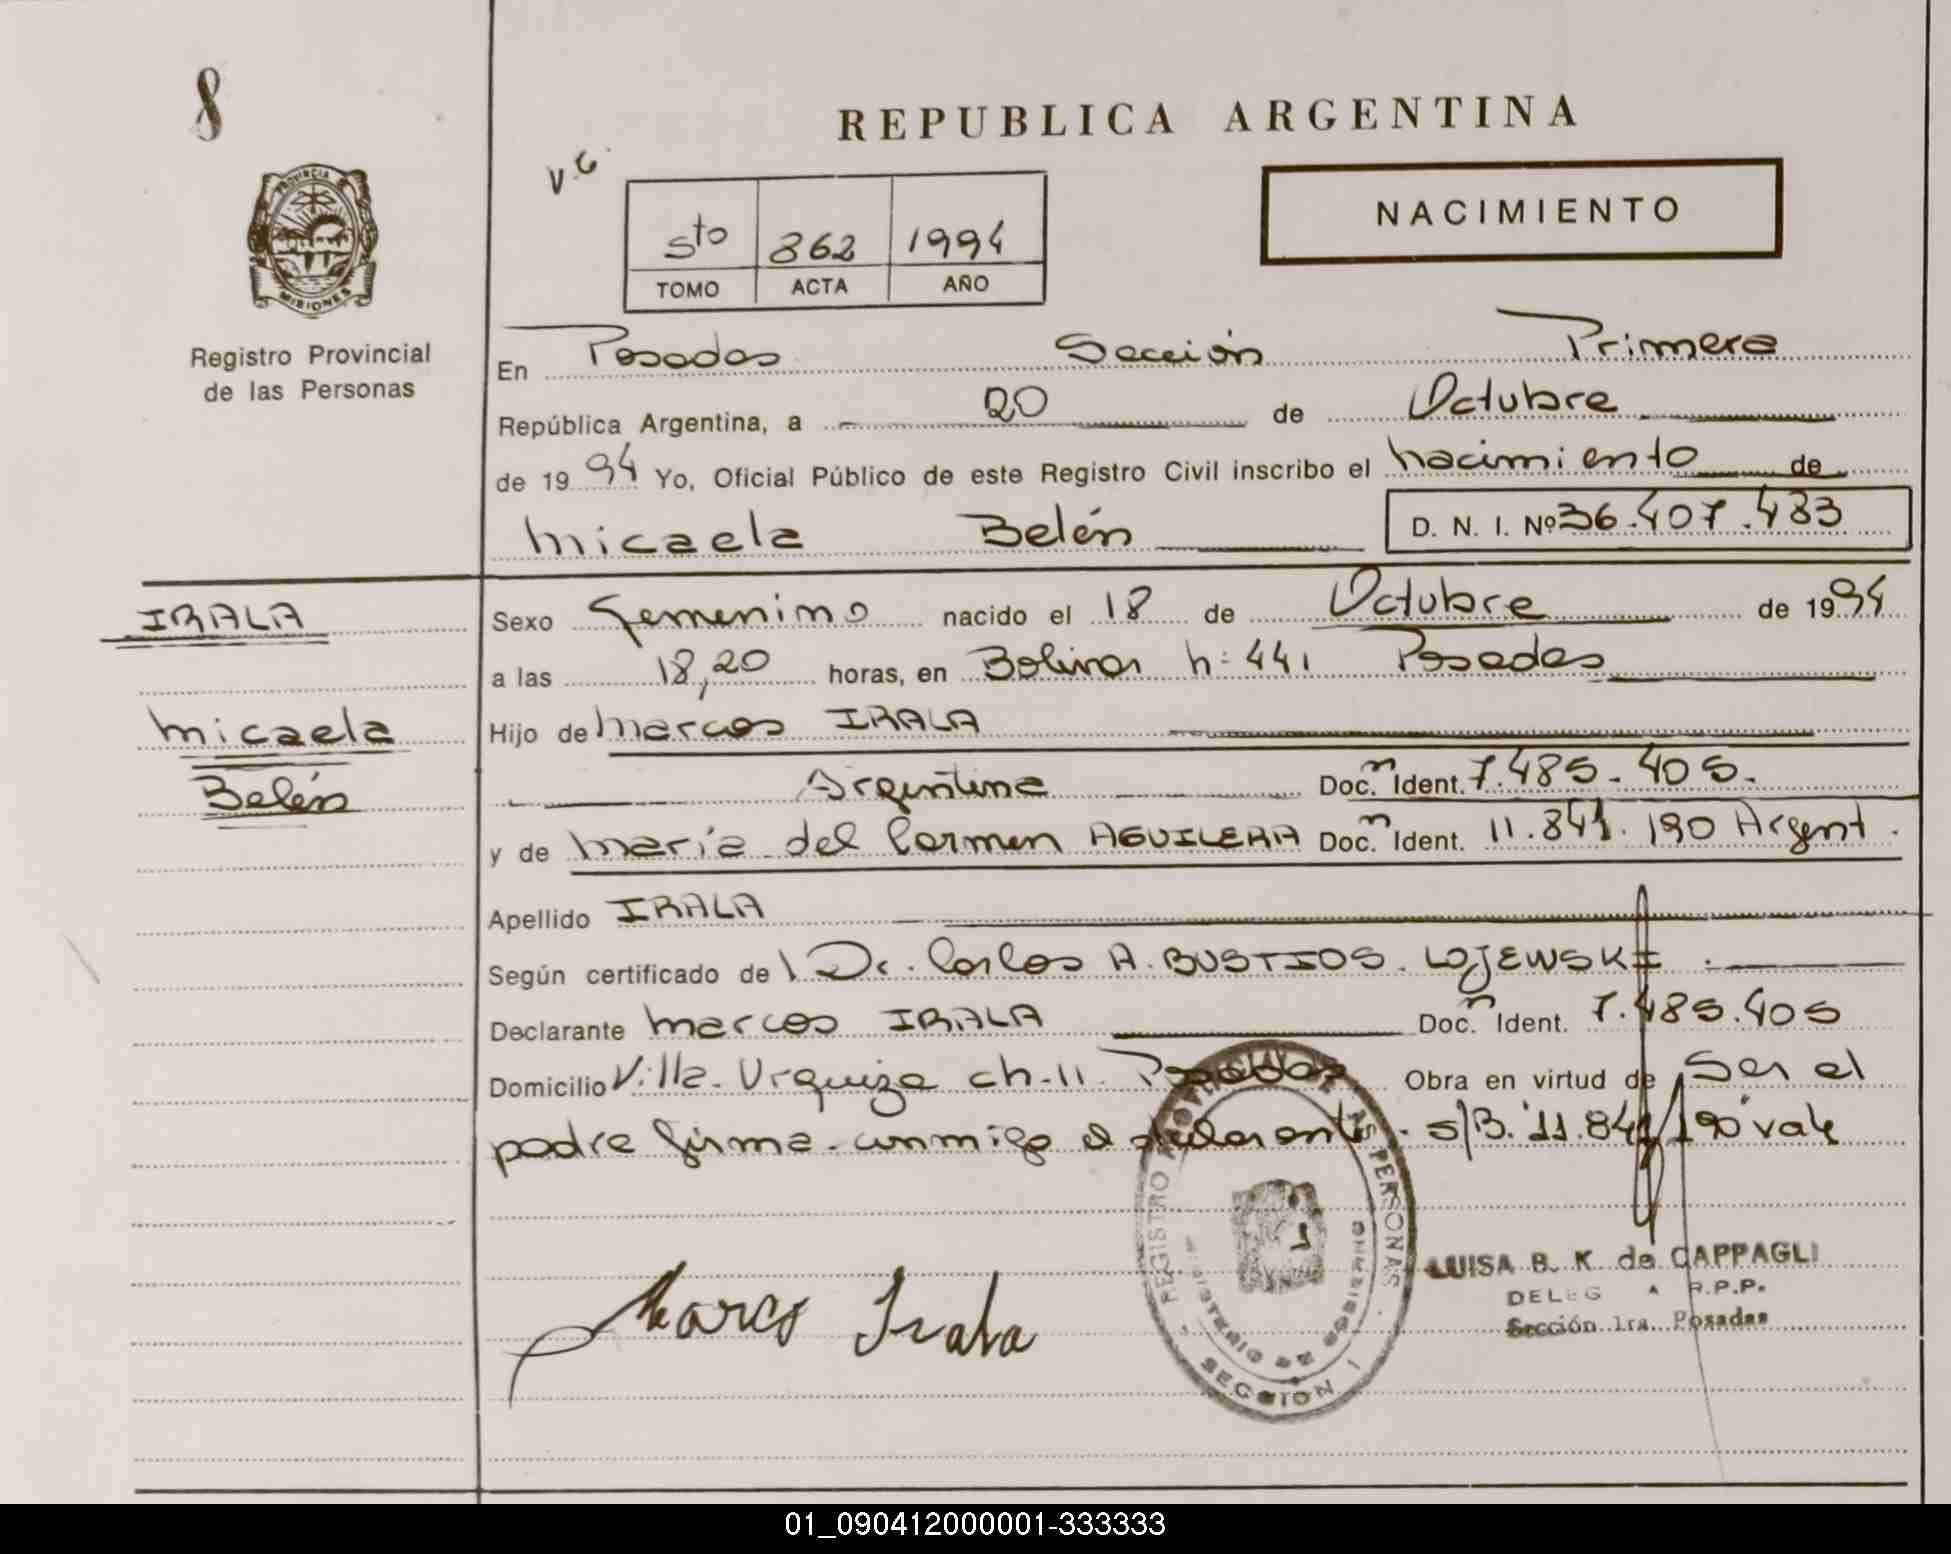 8
REPUBLICA ARGENTINA
V.G.
5to 862 1994
TOMO ACTA AÑO
NACIMIENTO
PROVINCIA
MISIONES
Registro Provincial
de las Personas
En Posadas Sección Primera
República Argentina, a 20 de Octubre
de 1994 Yo, Oficial Público de este Registro Civil inscribo el nacimiento de
Micaela Belén D. N. I. Nº 36.407.483
IRALA
Micaela
Belén
Sexo femenino nacido el 18 de Octubre de 1994
a las 18,20 horas, en Bolivar n: 441 Posadas
Hijo de Marcos IRALA
Argentina Doc.n Ident. 7.485.405.
y de María del Carmen AGUILERA Doc.n Ident. 11.841.190 Argent.
Apellido IRALA
Según certificado de l Dr. Carlos A. BUSTIOS. LOJEWSKI.
Declarante Marcos IRALA Doc.n Ident. 7.485.405
Domicilio Villa Urquiza ch-11. Posadas Obra en virtud de Ser el
padre firma conmigo el declarante. s/B."11.841/190"vale
REGISTRO PROVINCIAL DE LAS PERSONAS
MINISTERIO DE GOBIERNO
SECCION 1
Marcos Irala
LUISA B. K. de CAPPAGLI
DELEG A R.P.P.
Sección 1ra. Posadas
01_090412000001-333333